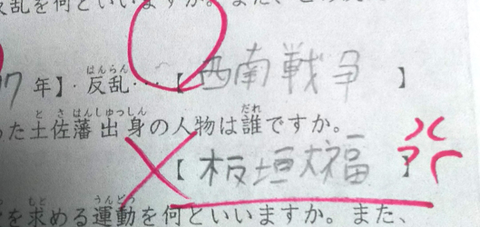 反乱を何といいますか。また、
7年】・反乱…【 西南戦争 】
った土佐藩出身の人物は誰ですか。
【 板垣大福 】
を求める運動を何といいますか。また、